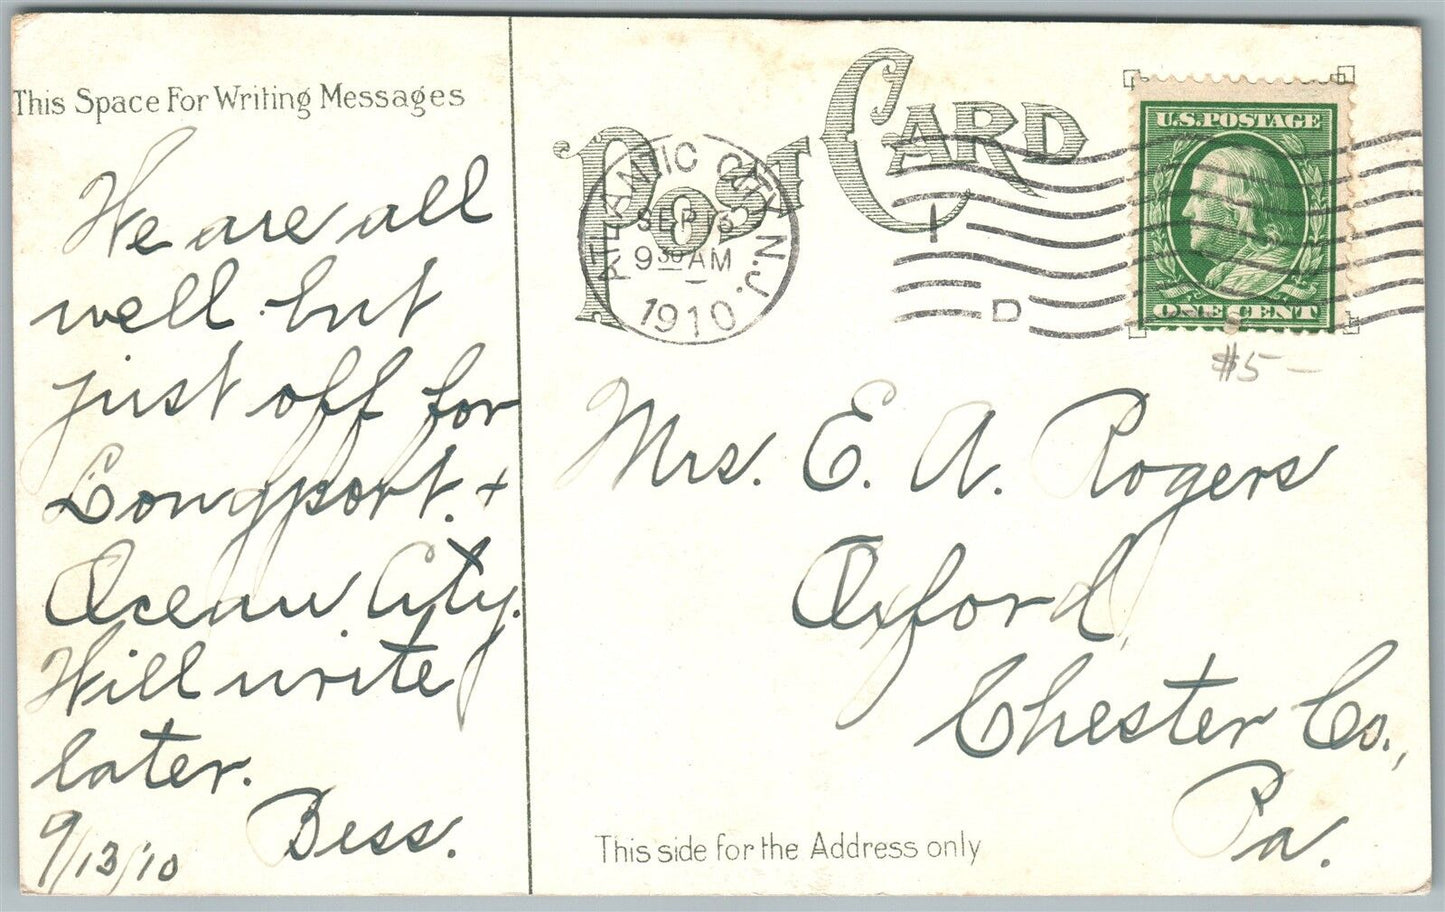 This Space For Writing Messages
We are all
well but
just off for
Longport. +
Ocean City.
Will write
later.
Bess.
9/13/10
POST CARD
ATLANTIC CITY N.J.
SEP 13
9 30 AM
1910
I
D
U.S.POSTAGE
ONE CENT
$5 —
Mrs. E. A. Rogers
Oxford,
Chester Co.,
Pa.
This side for the Address only